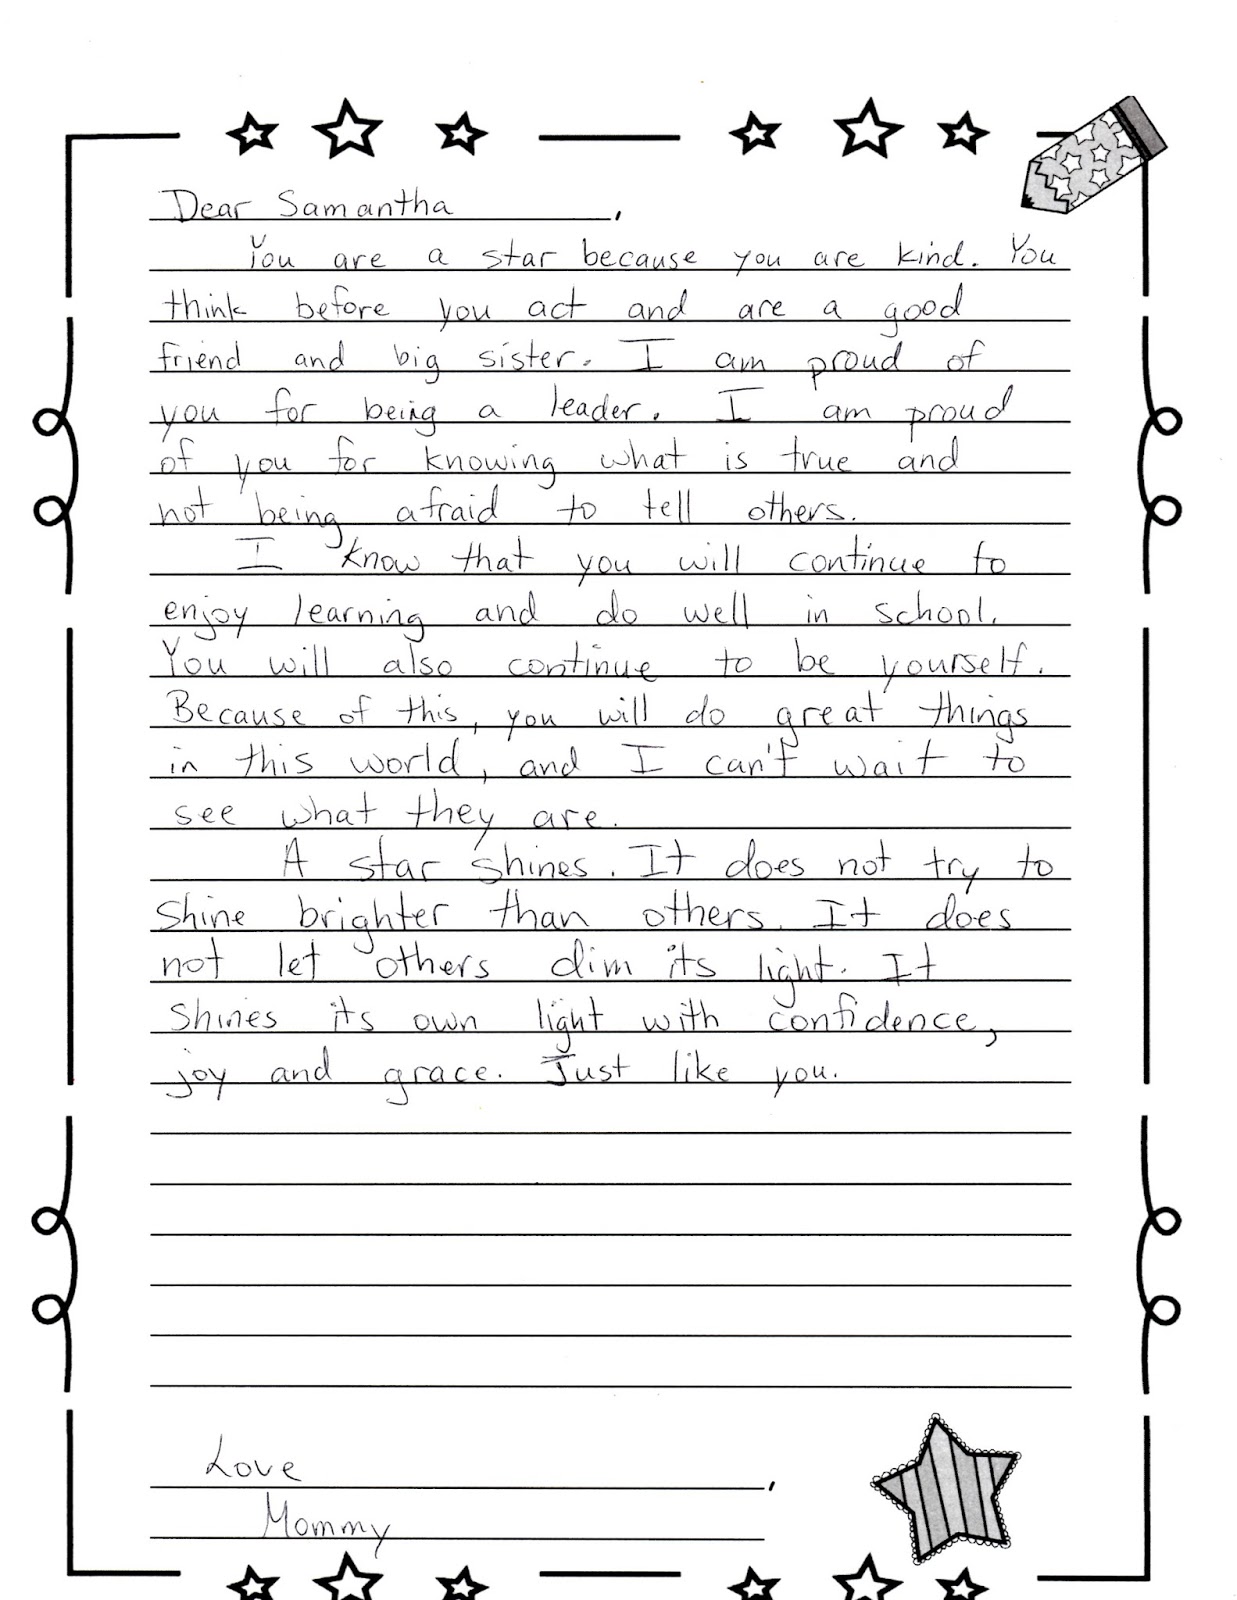 Dear Samantha,
You are a star because you are kind. You
think before you act and are a good
friend and big sister. I am proud of
you for being a leader. I am proud
of you for knowing what is true and
not being afraid to tell others.
I know that you will continue to
enjoy learning and do well in school.
You will also continue to be yourself.
Because of this, you will do great things
in this world, and I can't wait to
see what they are.
A star shines. It does not try to
shine brighter than others. It does
not let others dim its light. It
shines its own light with confidence,
joy and grace. Just like you.
Love,
Mommy